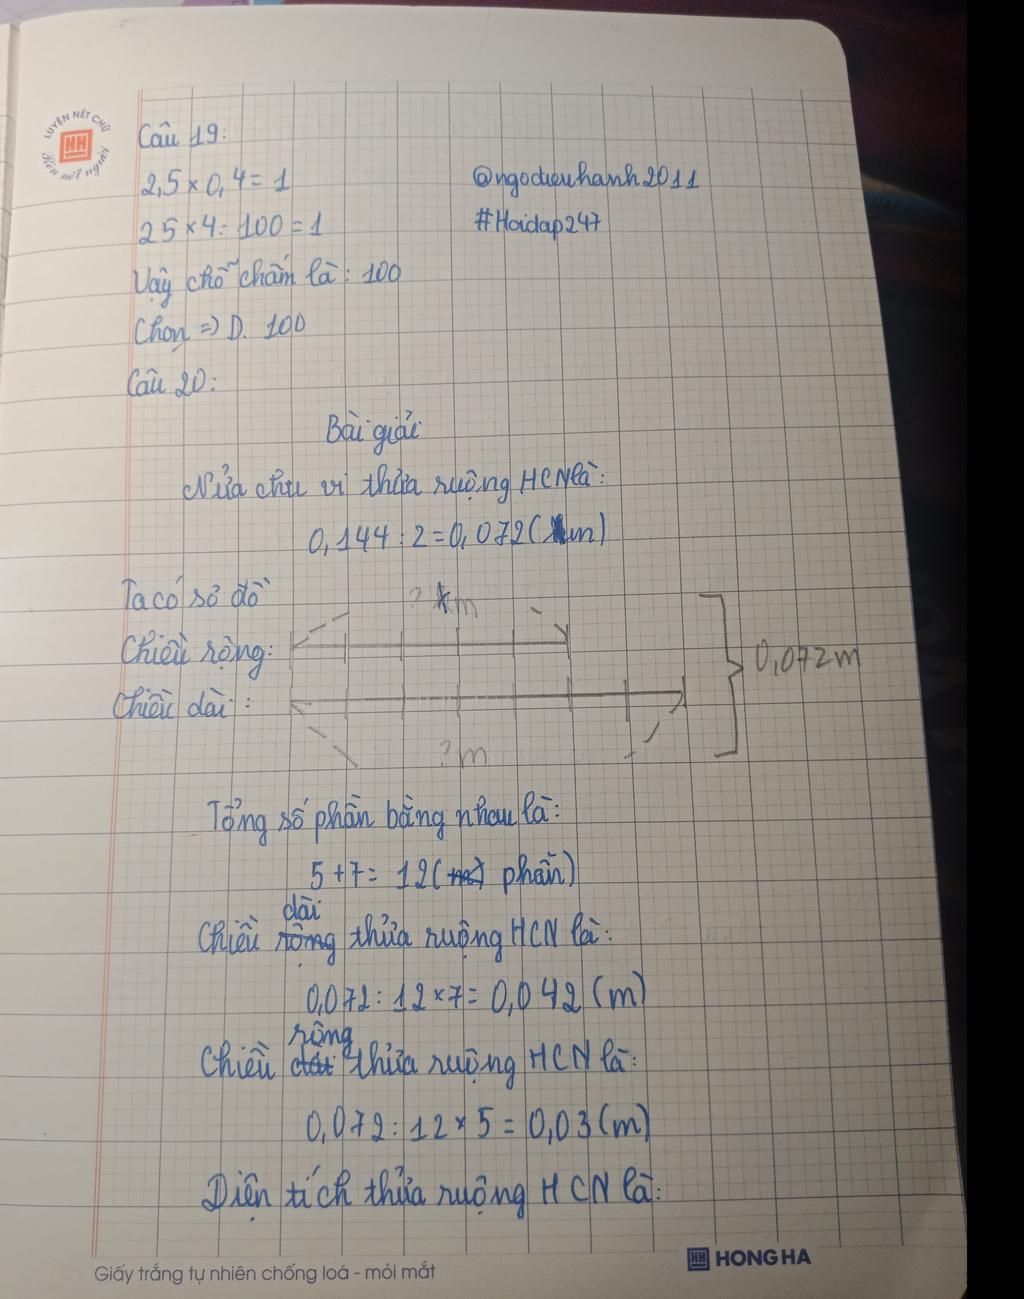 LUYỆN NẾT CHỮ
HH
Rèn nết người
Câu 19:
2,5 × 0,4 = 1
@ngodieuhanh2011
25 × 4 : 100 = 1
#Hoidap247
Vậy chỗ chấm là: 100
Chọn => D. 100
Câu 20:
Bài giải
Nửa chu vi thửa ruộng HCN là:
0,144 : 2 = 0,072 (m)
Ta có sơ đồ
? m
Chiều rộng:
0,072 m
Chiều dài :
? m
Tổng số phần bằng nhau là:
5 + 7 = 12 (phần)
Chiều dài thửa ruộng HCN là:
0,072 : 12 × 7 = 0,042 (m)
Chiều rộng thửa ruộng HCN là:
0,072 : 12 × 5 = 0,03 (m)
Diện tích thửa ruộng HCN là:
Giấy trắng tự nhiên chống loá - mỏi mắt
HH HONG HA